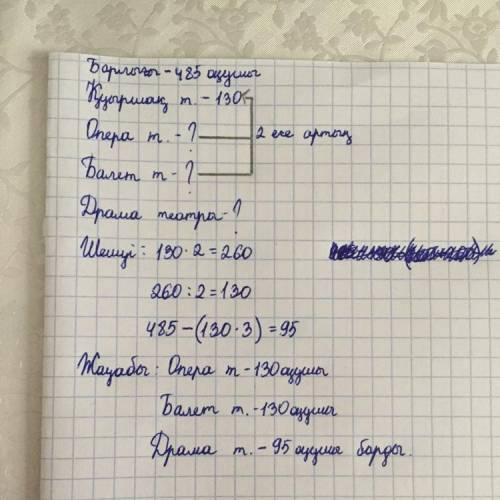 Барлығы - 485 оқушы
Қуыршақ т. - 130
Опера т. - ?
2 есе артық
Балет т - ?
Драма театры - ?
Шешуі: 130 · 2 = 260
260 : 2 = 130
485 - (130 · 3) = 95
Жауабы: Опера т - 130 оқушы
Балет т. - 130 оқушы
Драма т. - 95 оқушы барды.